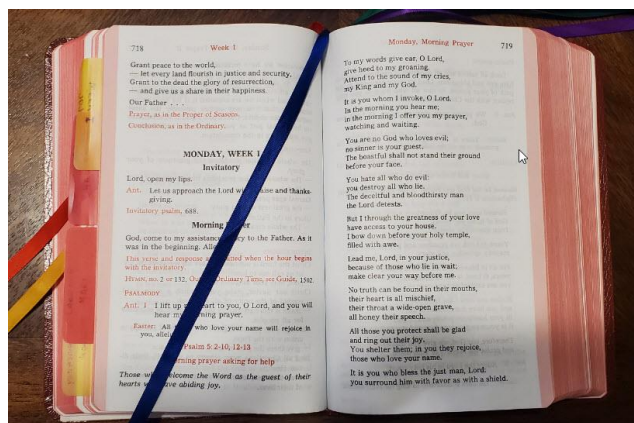 718 Week 1
Grant peace to the world,
— let every land flourish in justice and security.
Grant to the dead the glory of resurrection,
— and give us a share in their happiness.
Our Father . . .
Prayer, as in the Proper of Seasons.
Conclusion, as in the Ordinary.
MONDAY, WEEK 1
Invitatory
Lord, open my lips.
Ant. Let us approach the Lord with praise and thanks-
giving.
Invitatory psalm, 688.
Morning Prayer
God, come to my assistance. Glory to the Father. As it
was in the beginning. Alleluia.
This verse and response are omitted when the hour begins
with the invitatory.
HYMN, no. 2 or 132, Ordinary Time, see Guide,
PSALMODY
Ant. 1 I lift up my heart to you, O Lord, and you will
hear my morning prayer.
Easter: All who love your name will rejoice in
you, alleluia.
Psalm 5: 2-10, 12-13
Morning prayer asking for help
Those who welcome the Word as the guest of their
hearts will have abiding joy.
Monday, Morning Prayer 719
To my words give ear, O Lord,
give heed to my groaning.
Attend to the sound of my cries,
my King and my God.
It is you whom I invoke, O Lord.
In the morning you hear me;
in the morning I offer you my prayer,
watching and waiting.
You are no God who loves evil;
no sinner is your guest.
The boastful shall not stand their ground
before your face.
You hate all who do evil:
you destroy all who lie.
The deceitful and bloodthirsty man
the Lord detests.
But I through the greatness of your love
have access to your house.
I bow down before your holy temple,
filled with awe.
Lead me, Lord, in your justice,
because of those who lie in wait;
make clear your way before me.
No truth can be found in their mouths,
their heart is all mischief,
their throat a wide-open grave,
all honey their speech.
All those you protect shall be glad
and ring out their joy.
You shelter them; in you they rejoice,
those who love your name.
It is you who bless the just man, Lord:
you surround him with favor as with a shield.